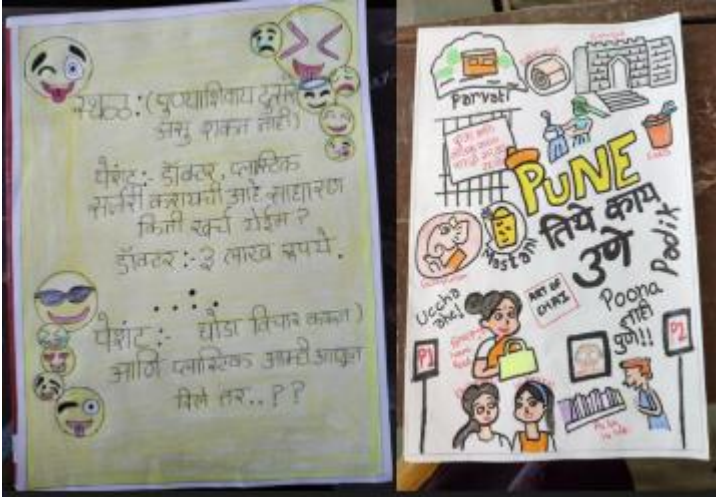 स्थळ : (पुण्याशिवाय दुसरे
असु शकत नाही)
पेशंट :- डॉक्टर, प्लास्टिक
सर्जरी करायची आहे साधारण
किती खर्च येईल ?
डॉक्टर :- ३ लाख रुपये.
पेशंट :- थोडा विचार करून)
आणि प्लास्टिक आम्ही आणून
दिले तर..??
Parvati
PUNE
तिथे काय
उणे
Mastani
Padik
Uccha
ART OF
CHAI
Poona
नाही
पुणे!!
P1
P2